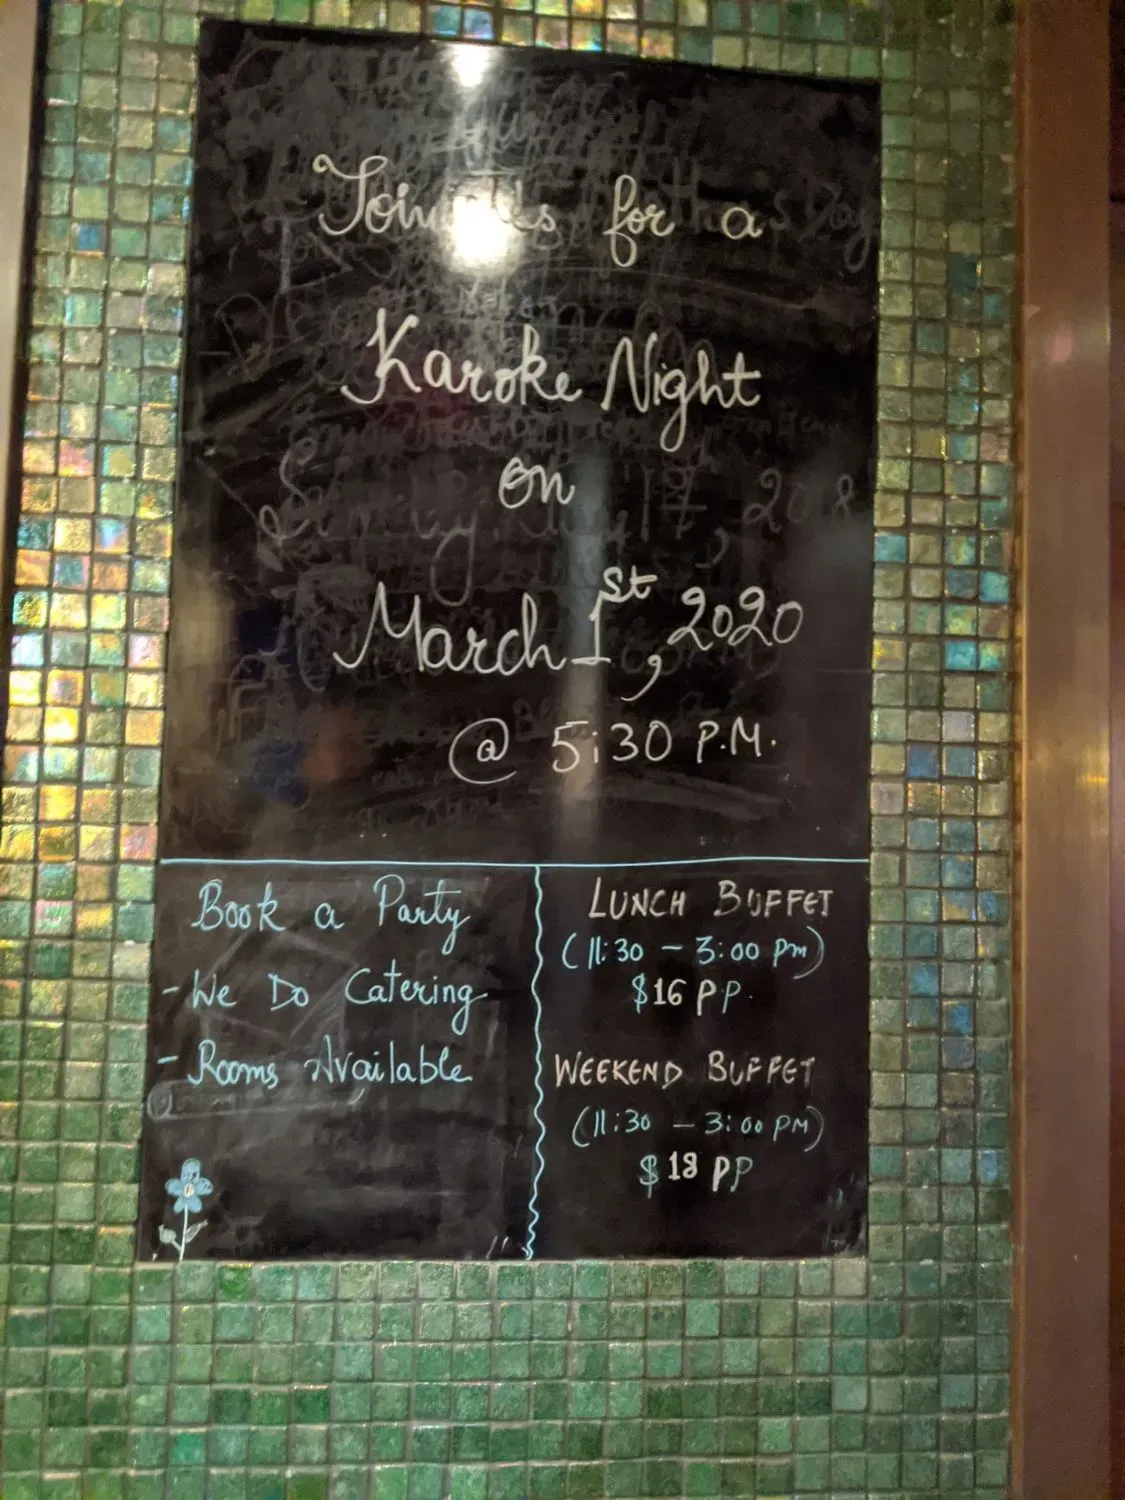 Join Us for a
Karoke Night
on
March 1st, 2020
@ 5:30 P.M.
Book a Party
- We Do Catering
- Rooms Available
LUNCH BUFFET
(11:30 - 3:00 Pm)
$16 PP.
WEEKEND BUFFET
(11:30 - 3:00 PM)
$18 PP